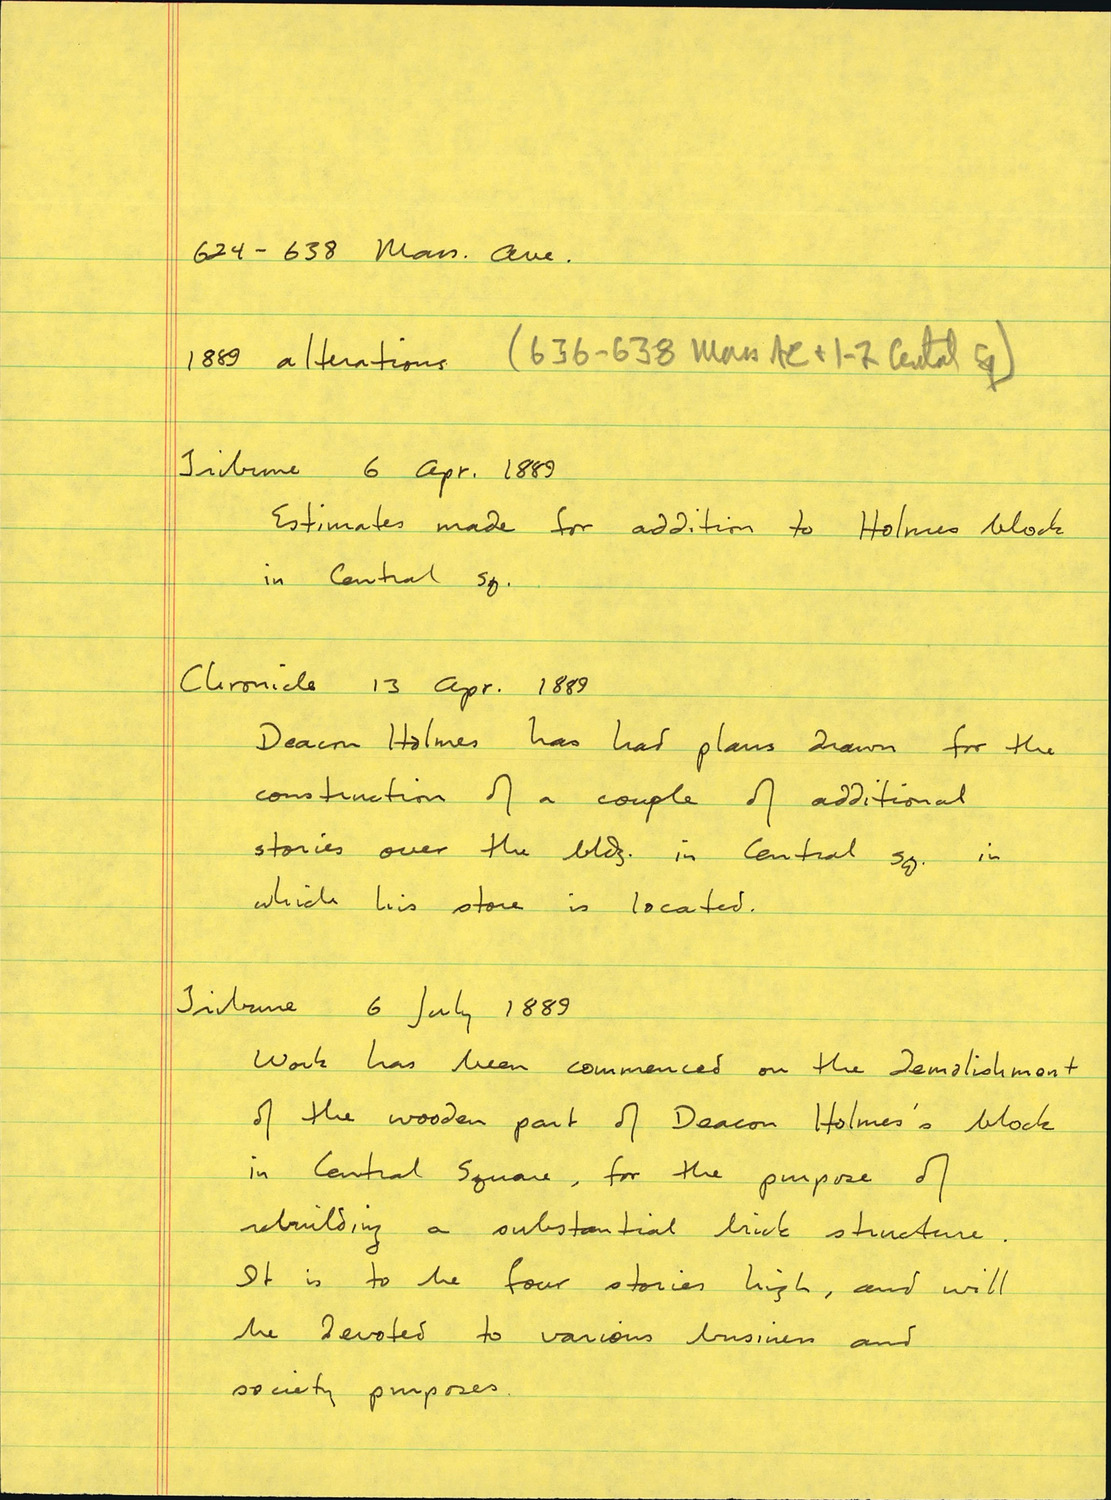 624-638 Mass. Ave.
1889 alterations (636-638 Mass Ave + 1-7 Central Sq)
Tribune 6 Apr. 1889
Estimates made for addition to Holmes block
in Central Sq.
Chronicle 13 Apr. 1889
Deacon Holmes has had plans drawn for the
construction of a couple of additional
stories over the bldg. in Central Sq. in
which his store is located.
Tribune 6 July 1889
Work has been commenced on the demolishment
of the wooden part of Deacon Holmes's block
in Central Square, for the purpose of
rebuilding a substantial brick structure.
It is to be four stories high, and will
be devoted to various business and
society purposes.